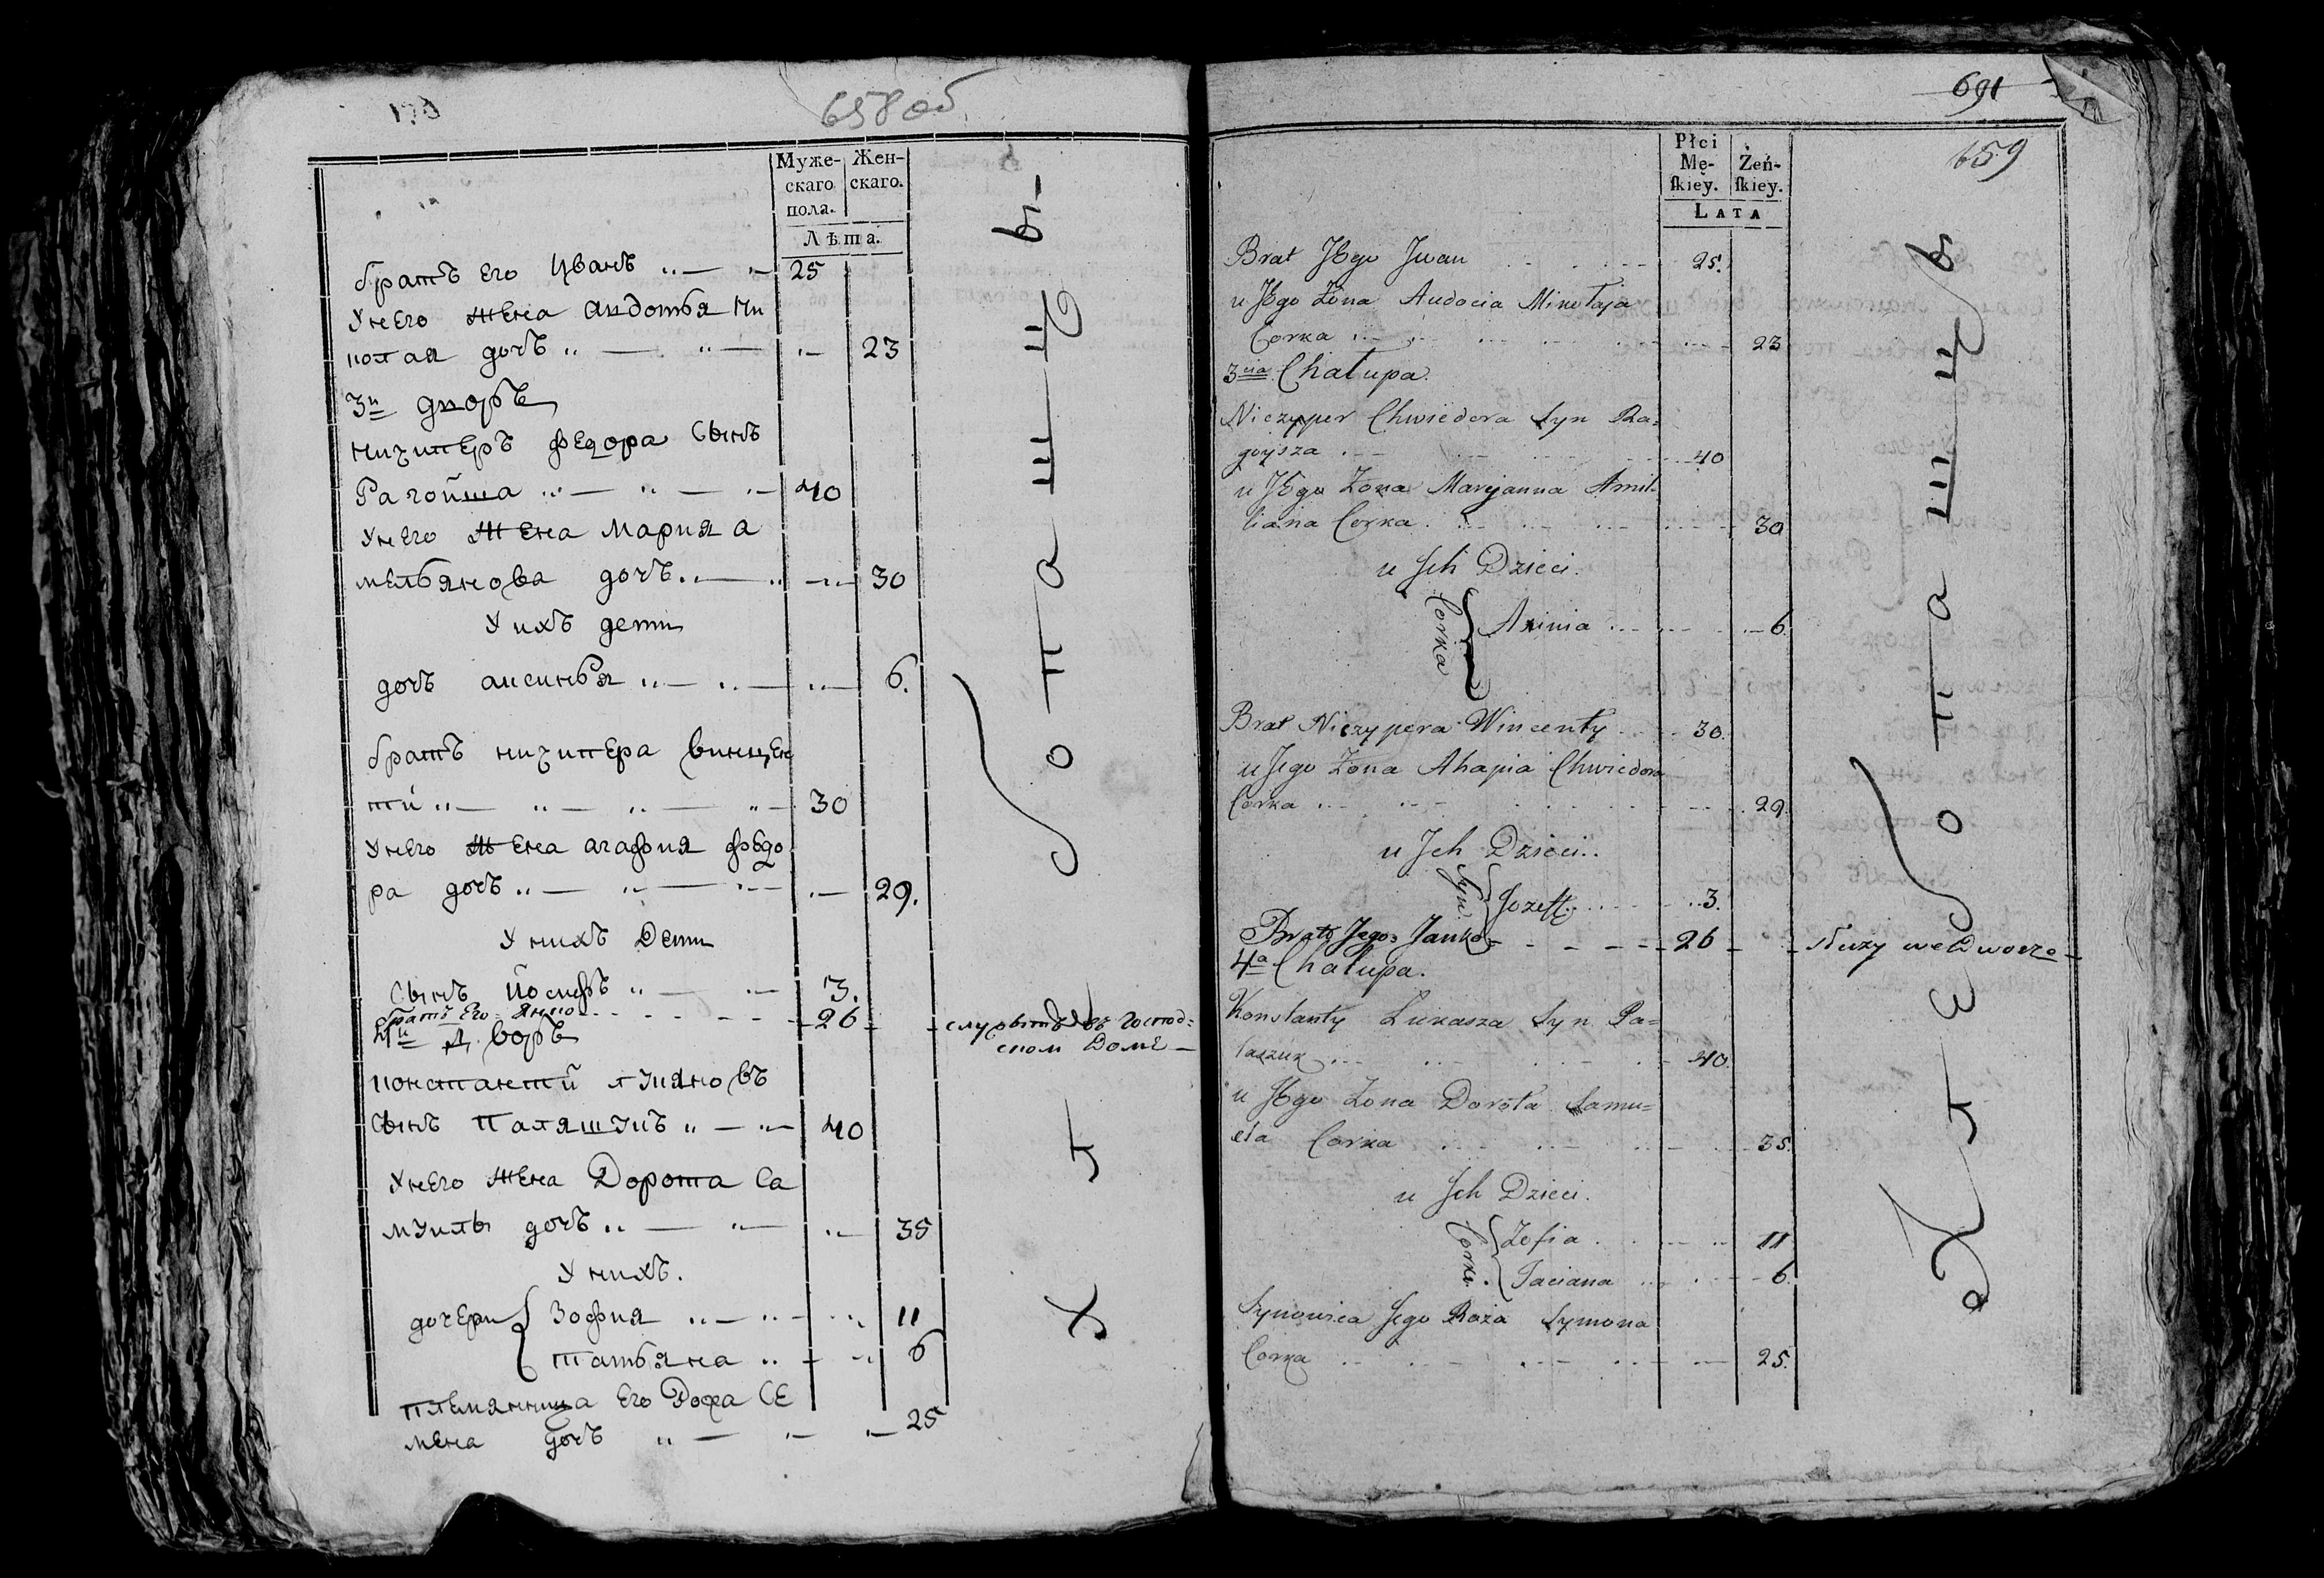 658 об
Муже-
скаго
пола.
Жен-
скаго.
Лѣта.
братъ Его Иванъ 25
у него жена авдотья ни
колая дочъ 23
3й дворъ
ничиперъ федора сынъ
Рагойша 40
у него жена мария а
мельянова дочъ 30
у ихъ дети
дочъ аксинья 6.
братъ ничипера винцен
тий 30
у него жена агафия федо
ра дочъ 29.
у нихъ Дети
сынъ йосифъ 3.
братъ Его Янко 26 служытъ въ господ=
4й Дворъ ском Доме
константий лукяновъ
сынъ Паляшукъ 40
у него жена Дорота Са
муилы дочъ 35
у нихъ.
дочери Зофия 11
татьяна 6
племянница Его Рожа СЕ
мена дочъ 25
хлѣбопашцы
691
659
Płci
Mę-
ſkiéy.
Żeń-
ſkiey.
LATA
Brat Jego Jwan 25.
u Jego Zona Audocia Mikołaja
Corka 23
3cia Chałupa.
Niczyper Chwiedora Syn Ra=
goysza 40
u Jego Zona Maryanna Amil-
liana Corka 30
u Jch Dzieci.
Corka Axinia 6.
Brat Niczypera Wincenty 30.
u Jego Zona Ahapia Chwiedora
Corka 29.
u Jch Dzieci.
Syn Jozeff 3.
Brat Jego Janko 26 słuzy we Dworze
4a Chałupa.
Konstanty Łukasza Syn Pa=
laszuk 40.
u Jego Zona Dorota Samu=
ela Corka 35.
u Jch Dzieci.
Corki Zofia 11
Taciana 6.
Synowica Jego Roza Symona
Corka 25.
хлебопашцъ